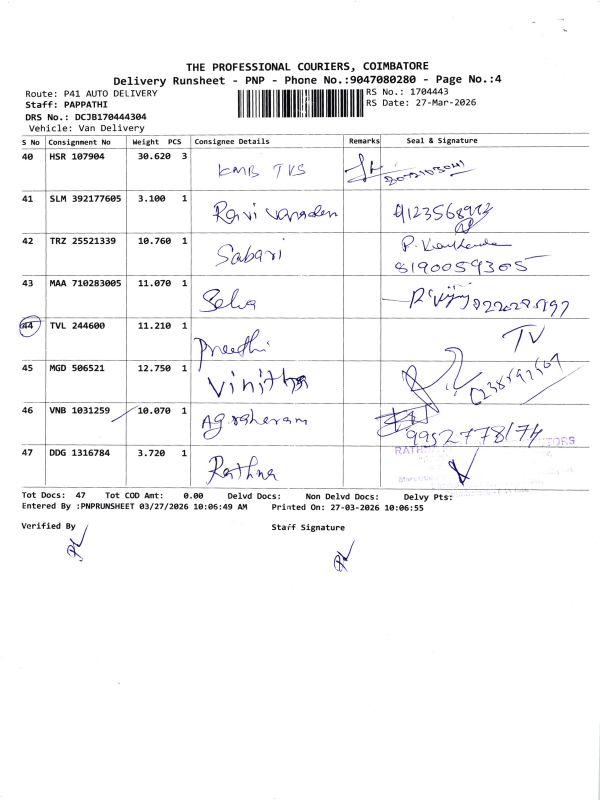 THE PROFESSIONAL COURIERS, COIMBATORE
Delivery Runsheet - PNP - Phone No.:9047080280 - Page No.:4
Route: P41 AUTO DELIVERY
RS No.: 1704443
Staff: PAPPATHI
RS Date: 27-Mar-2026
DRS No.: DCJB170444304
Vehicle: Van Delivery
S No Consignment No Weight PCS Consignee Details Remarks Seal & Signature
40 HSR 107904 30.620 3 KMB TVS
41 SLM 392177605 3.100 1 Ravi
42 TRZ 25521339 10.760 1 Sabari
8190059305
43 MAA 710283005 11.070 1 Selva
44 TVL 244600 11.210 1 Preethi TV
45 MGD 506521 12.750 1 Vinitha
46 VNB 1031259 10.070 1 Agraharam
47 DDG 1316784 3.720 1 Rathna
Tot Docs: 47 Tot COD Amt: 0.00 Delvd Docs: Non Delvd Docs: Delvy Pts:
Entered By :PNPRUNSHEET 03/27/2026 10:06:49 AM Printed On: 27-03-2026 10:06:55
Verified By Staff Signature